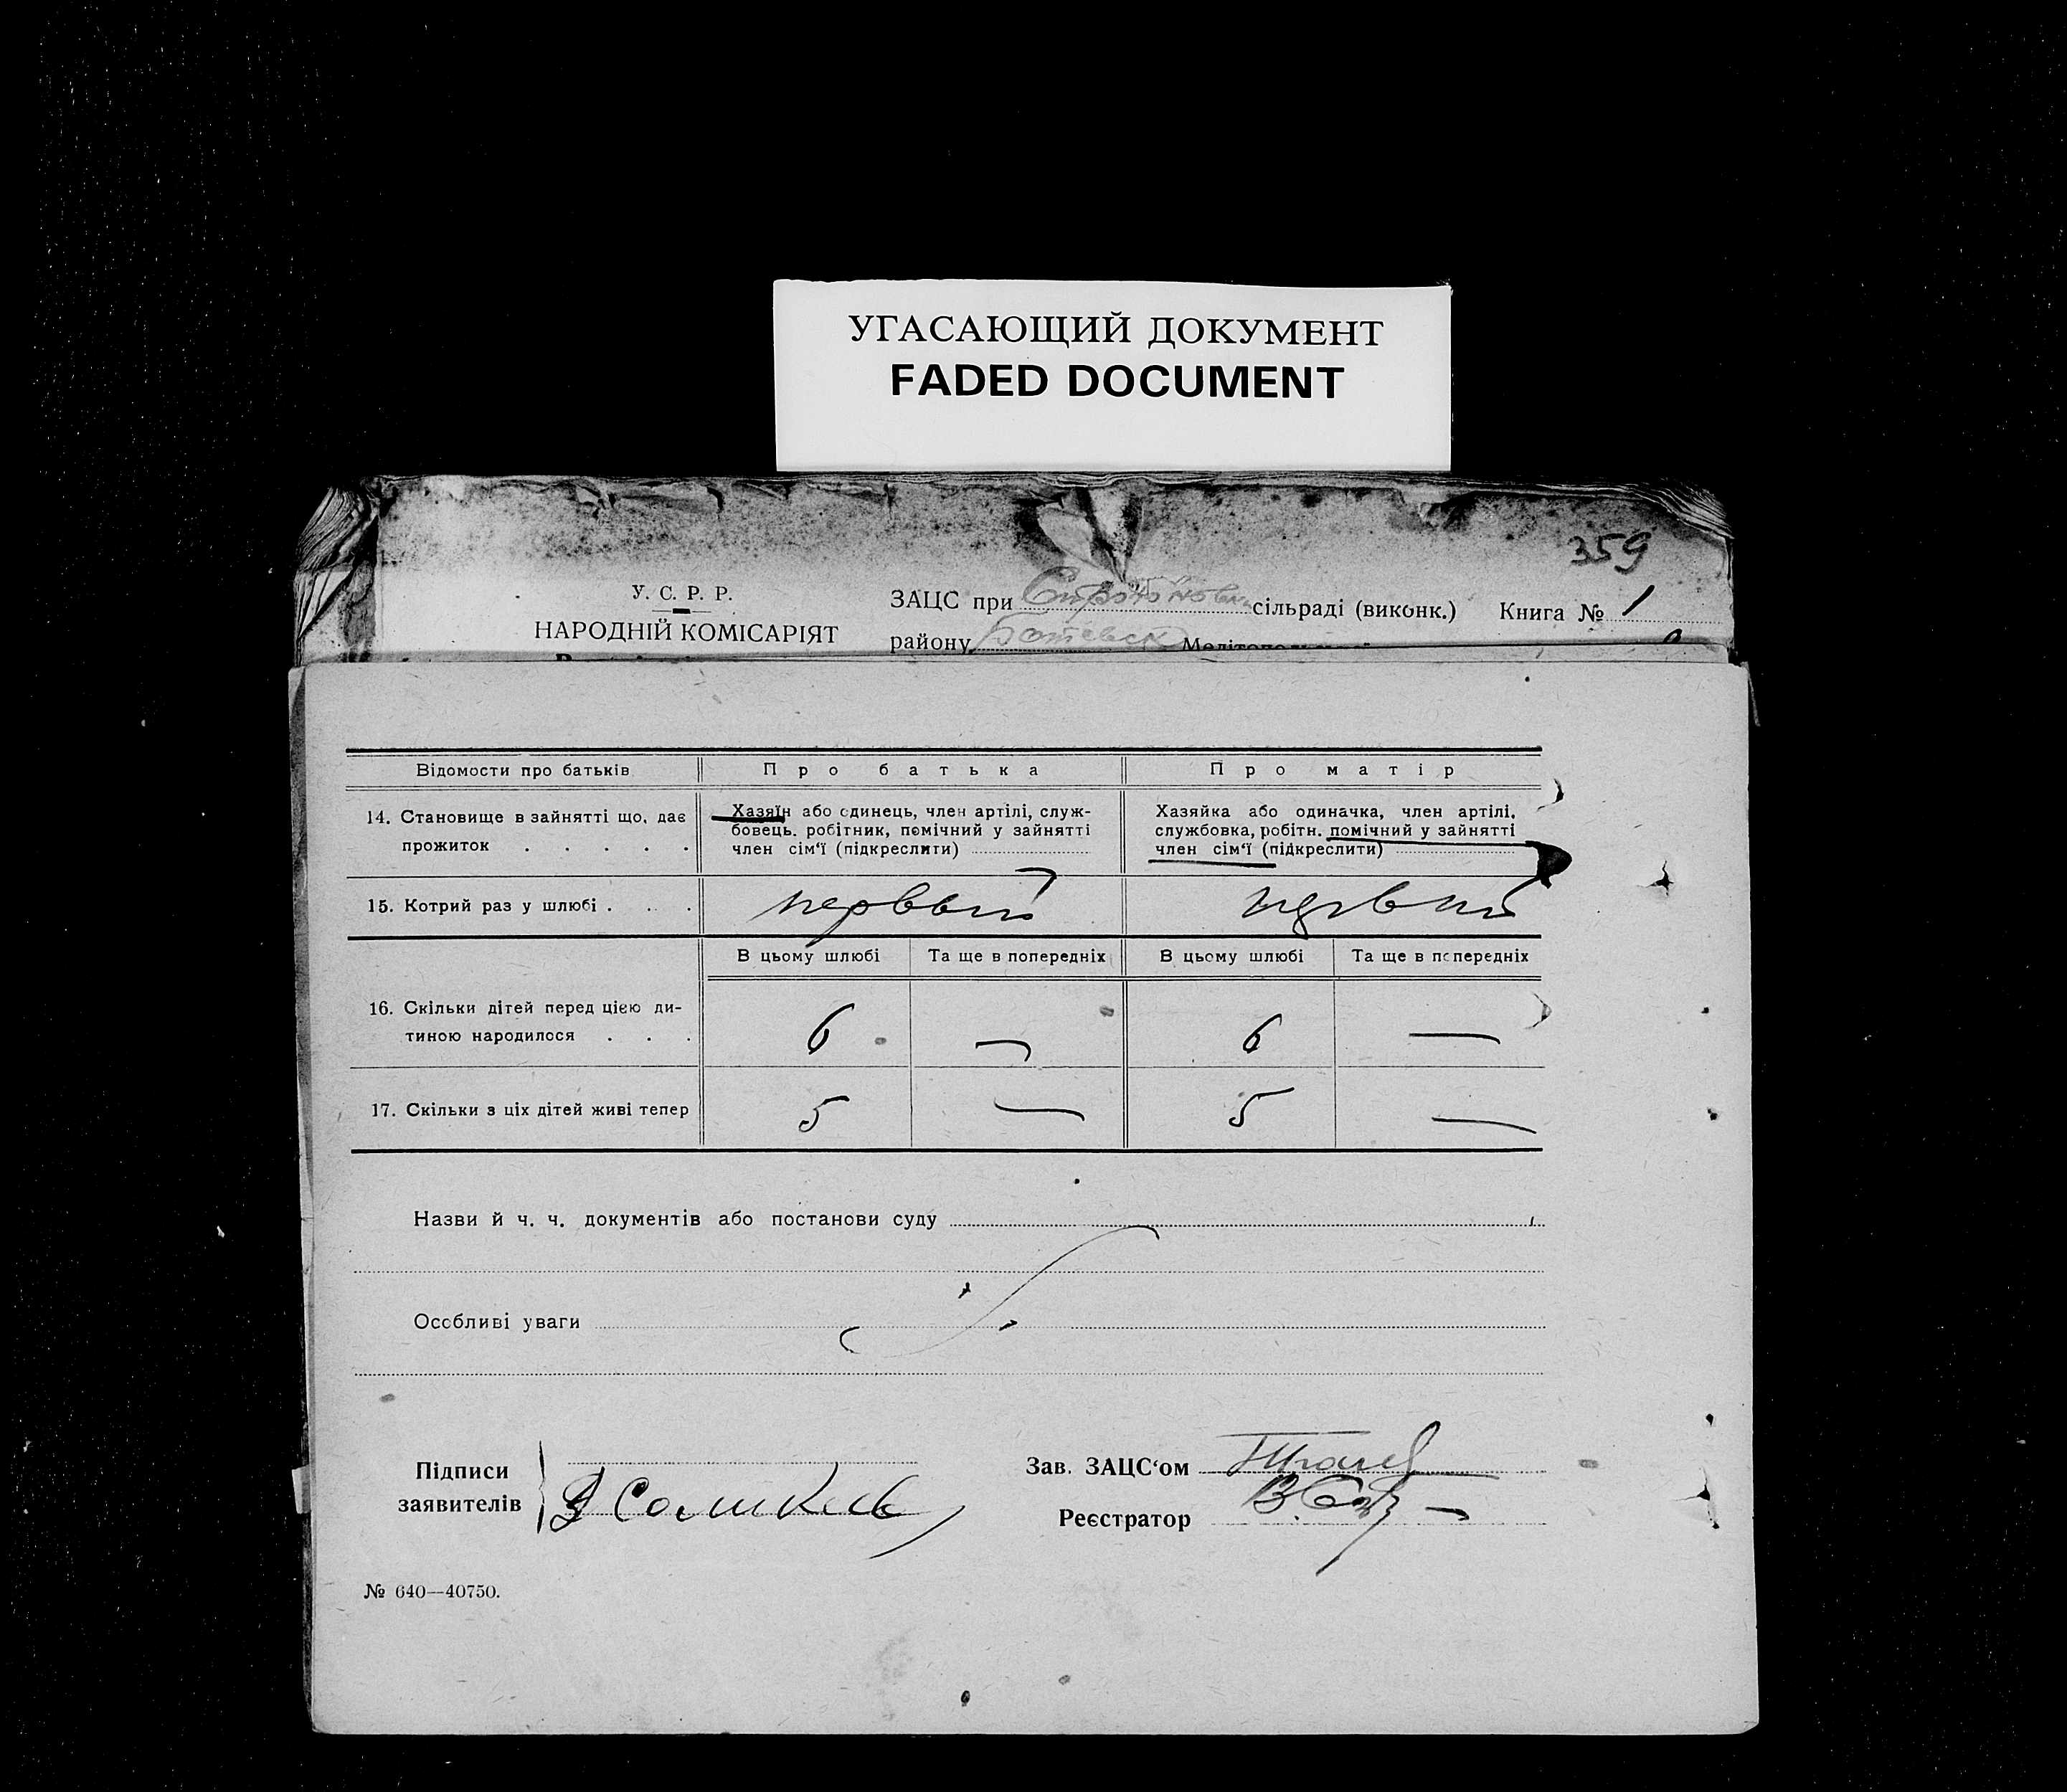 УГАСАЮЩИЙ ДОКУМЕНТ
FADED DOCUMENT
359
У. С. Р. Р.
НАРОДНІЙ КОМІСАРІЯТ
ЗАЦС при сільраді (виконк.) Книга № 1
району Мелітопольської
Відомости про батьків
Про батька
Про матір
14. Становище в зайнятті що, дає
прожиток . . . . .
Хазяїн або одинець, член артілі, служ-
бовець. робітник, помічний у зайнятті
член сім'ї (підкреслити)
Хазяйка або одиначка, член артілі,
службовка, робітн. помічний у зайнятті
член сім'ї (підкреслити)
15. Котрий раз у шлюбі . . . первый первый
В цьому шлюбі Та ще в попередніх В цьому шлюбі Та ще в попередніх
16. Скільки дітей перед цією ди-
тиною народилося . . . 6 — 6 —
17. Скільки з ціх дітей живі тепер 5 — 5 —
Назви й ч. ч. документів або постанови суду
Особливі уваги
Підписи
заявителів
Зав. ЗАЦС'ом
Реєстратор
№ 640—40750.